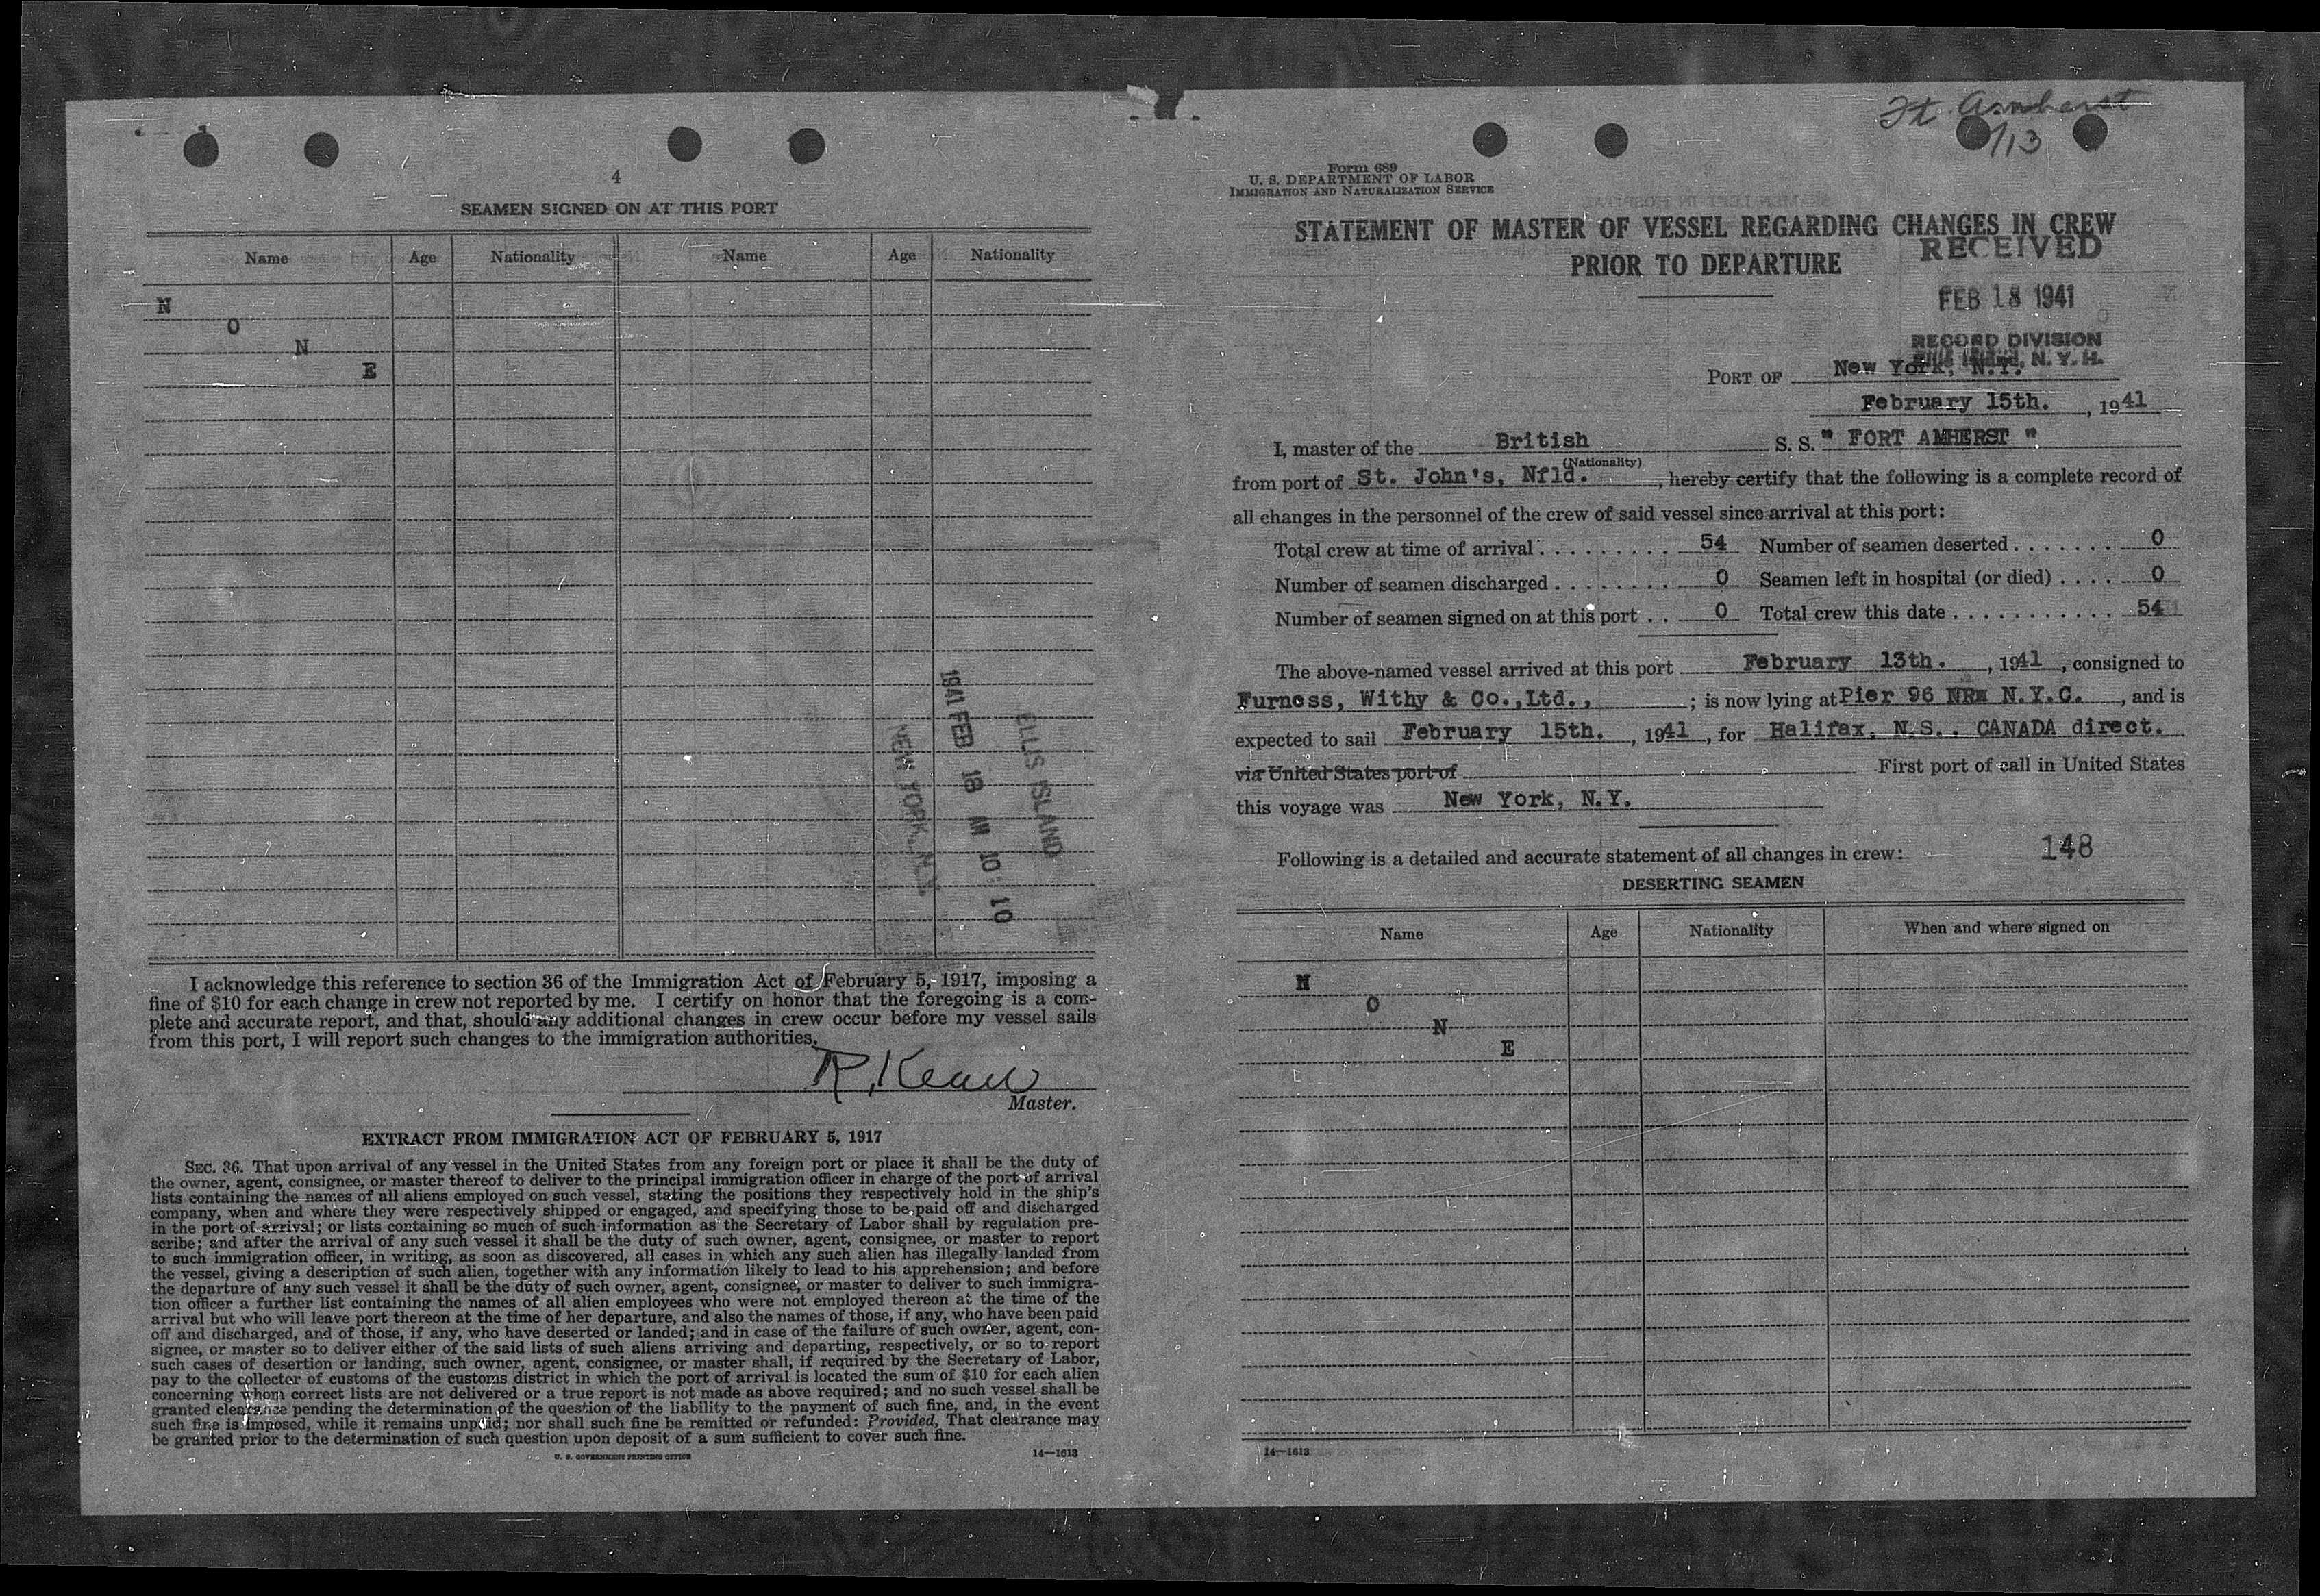 4
SEAMEN SIGNED ON AT THIS PORT
Name Age Nationality Name Age Nationality
N
O
N
E
1941 FEB 18 AM 10:10
ELLIS ISLAND
NEW YORK, N.Y.
I acknowledge this reference to section 36 of the Immigration Act of February 5, 1917, imposing a
fine of $10 for each change in crew not reported by me. I certify on honor that the foregoing is a com-
plete and accurate report, and that, should any additional changes in crew occur before my vessel sails
from this port, I will report such changes to the immigration authorities.
R. Kean
Master.
EXTRACT FROM IMMIGRATION ACT OF FEBRUARY 5, 1917
SEC. 36. That upon arrival of any vessel in the United States from any foreign port or place it shall be the duty of
the owner, agent, consignee, or master thereof to deliver to the principal immigration officer in charge of the port of arrival
lists containing the names of all aliens employed on such vessel, stating the positions they respectively hold in the ship's
company, when and where they were respectively shipped or engaged, and specifying those to be paid off and discharged
in the port of arrival; or lists containing so much of such information as the Secretary of Labor shall by regulation pre-
scribe; and after the arrival of any such vessel it shall be the duty of such owner, agent, consignee, or master to report
to such immigration officer, in writing, as soon as discovered, all cases in which any such alien has illegally landed from
the vessel, giving a description of such alien, together with any information likely to lead to his apprehension; and before
the departure of any such vessel it shall be the duty of such owner, agent, consignee, or master to deliver to such immigra-
tion officer a further list containing the names of all alien employees who were not employed thereon at the time of the
arrival but who will leave port thereon at the time of her departure, and also the names of those, if any, who have been paid
off and discharged, and of those, if any, who have deserted or landed; and in case of the failure of such owner, agent, con-
signee, or master so to deliver either of the said lists of such aliens arriving and departing, respectively, or so to report
such cases of desertion or landing, such owner, agent, consignee, or master shall, if required by the Secretary of Labor,
pay to the collector of customs of the customs district in which the port of arrival is located the sum of $10 for each alien
concerning whom correct lists are not delivered or a true report is not made as above required; and no such vessel shall be
granted clearance pending the determination of the question of the liability to the payment of such fine, and, in the event
such fine is imposed, while it remains unpaid; nor shall such fine be remitted or refunded: Provided, That clearance may
be granted prior to the determination of such question upon deposit of a sum sufficient to cover such fine.
U. S. GOVERNMENT PRINTING OFFICE 14—1613
Ft. Amherst
/13
Form 689
U. S. DEPARTMENT OF LABOR
IMMIGRATION AND NATURALIZATION SERVICE
STATEMENT OF MASTER OF VESSEL REGARDING CHANGES IN CREW
PRIOR TO DEPARTURE
RECEIVED
FEB 18 1941
RECORD DIVISION
N. Y. H.
PORT OF New York, N.Y.
February 15th. , 1941
I, master of the British S. S. " FORT AMHERST "
(Nationality)
from port of St. John's, Nfld. , hereby certify that the following is a complete record of
all changes in the personnel of the crew of said vessel since arrival at this port:
Total crew at time of arrival . . . . . . . . . 54 Number of seamen deserted . . . . . . . 0
Number of seamen discharged . . . . . . . . 0 Seamen left in hospital (or died) . . . . 0
Number of seamen signed on at this port . . 0 Total crew this date . . . . . . . . . . . 54
The above-named vessel arrived at this port February 13th. , 1941 , consigned to
Furness, Withy & Co.,Ltd., ; is now lying at Pier 96 NR N.Y.C. , and is
expected to sail February 15th. , 1941 , for Halifax, N.S.. CANADA direct.
via United States port of First port of call in United States
this voyage was New York, N.Y.
Following is a detailed and accurate statement of all changes in crew: 148
DESERTING SEAMEN
Name Age Nationality When and where signed on
N
O
N
E
14—1613